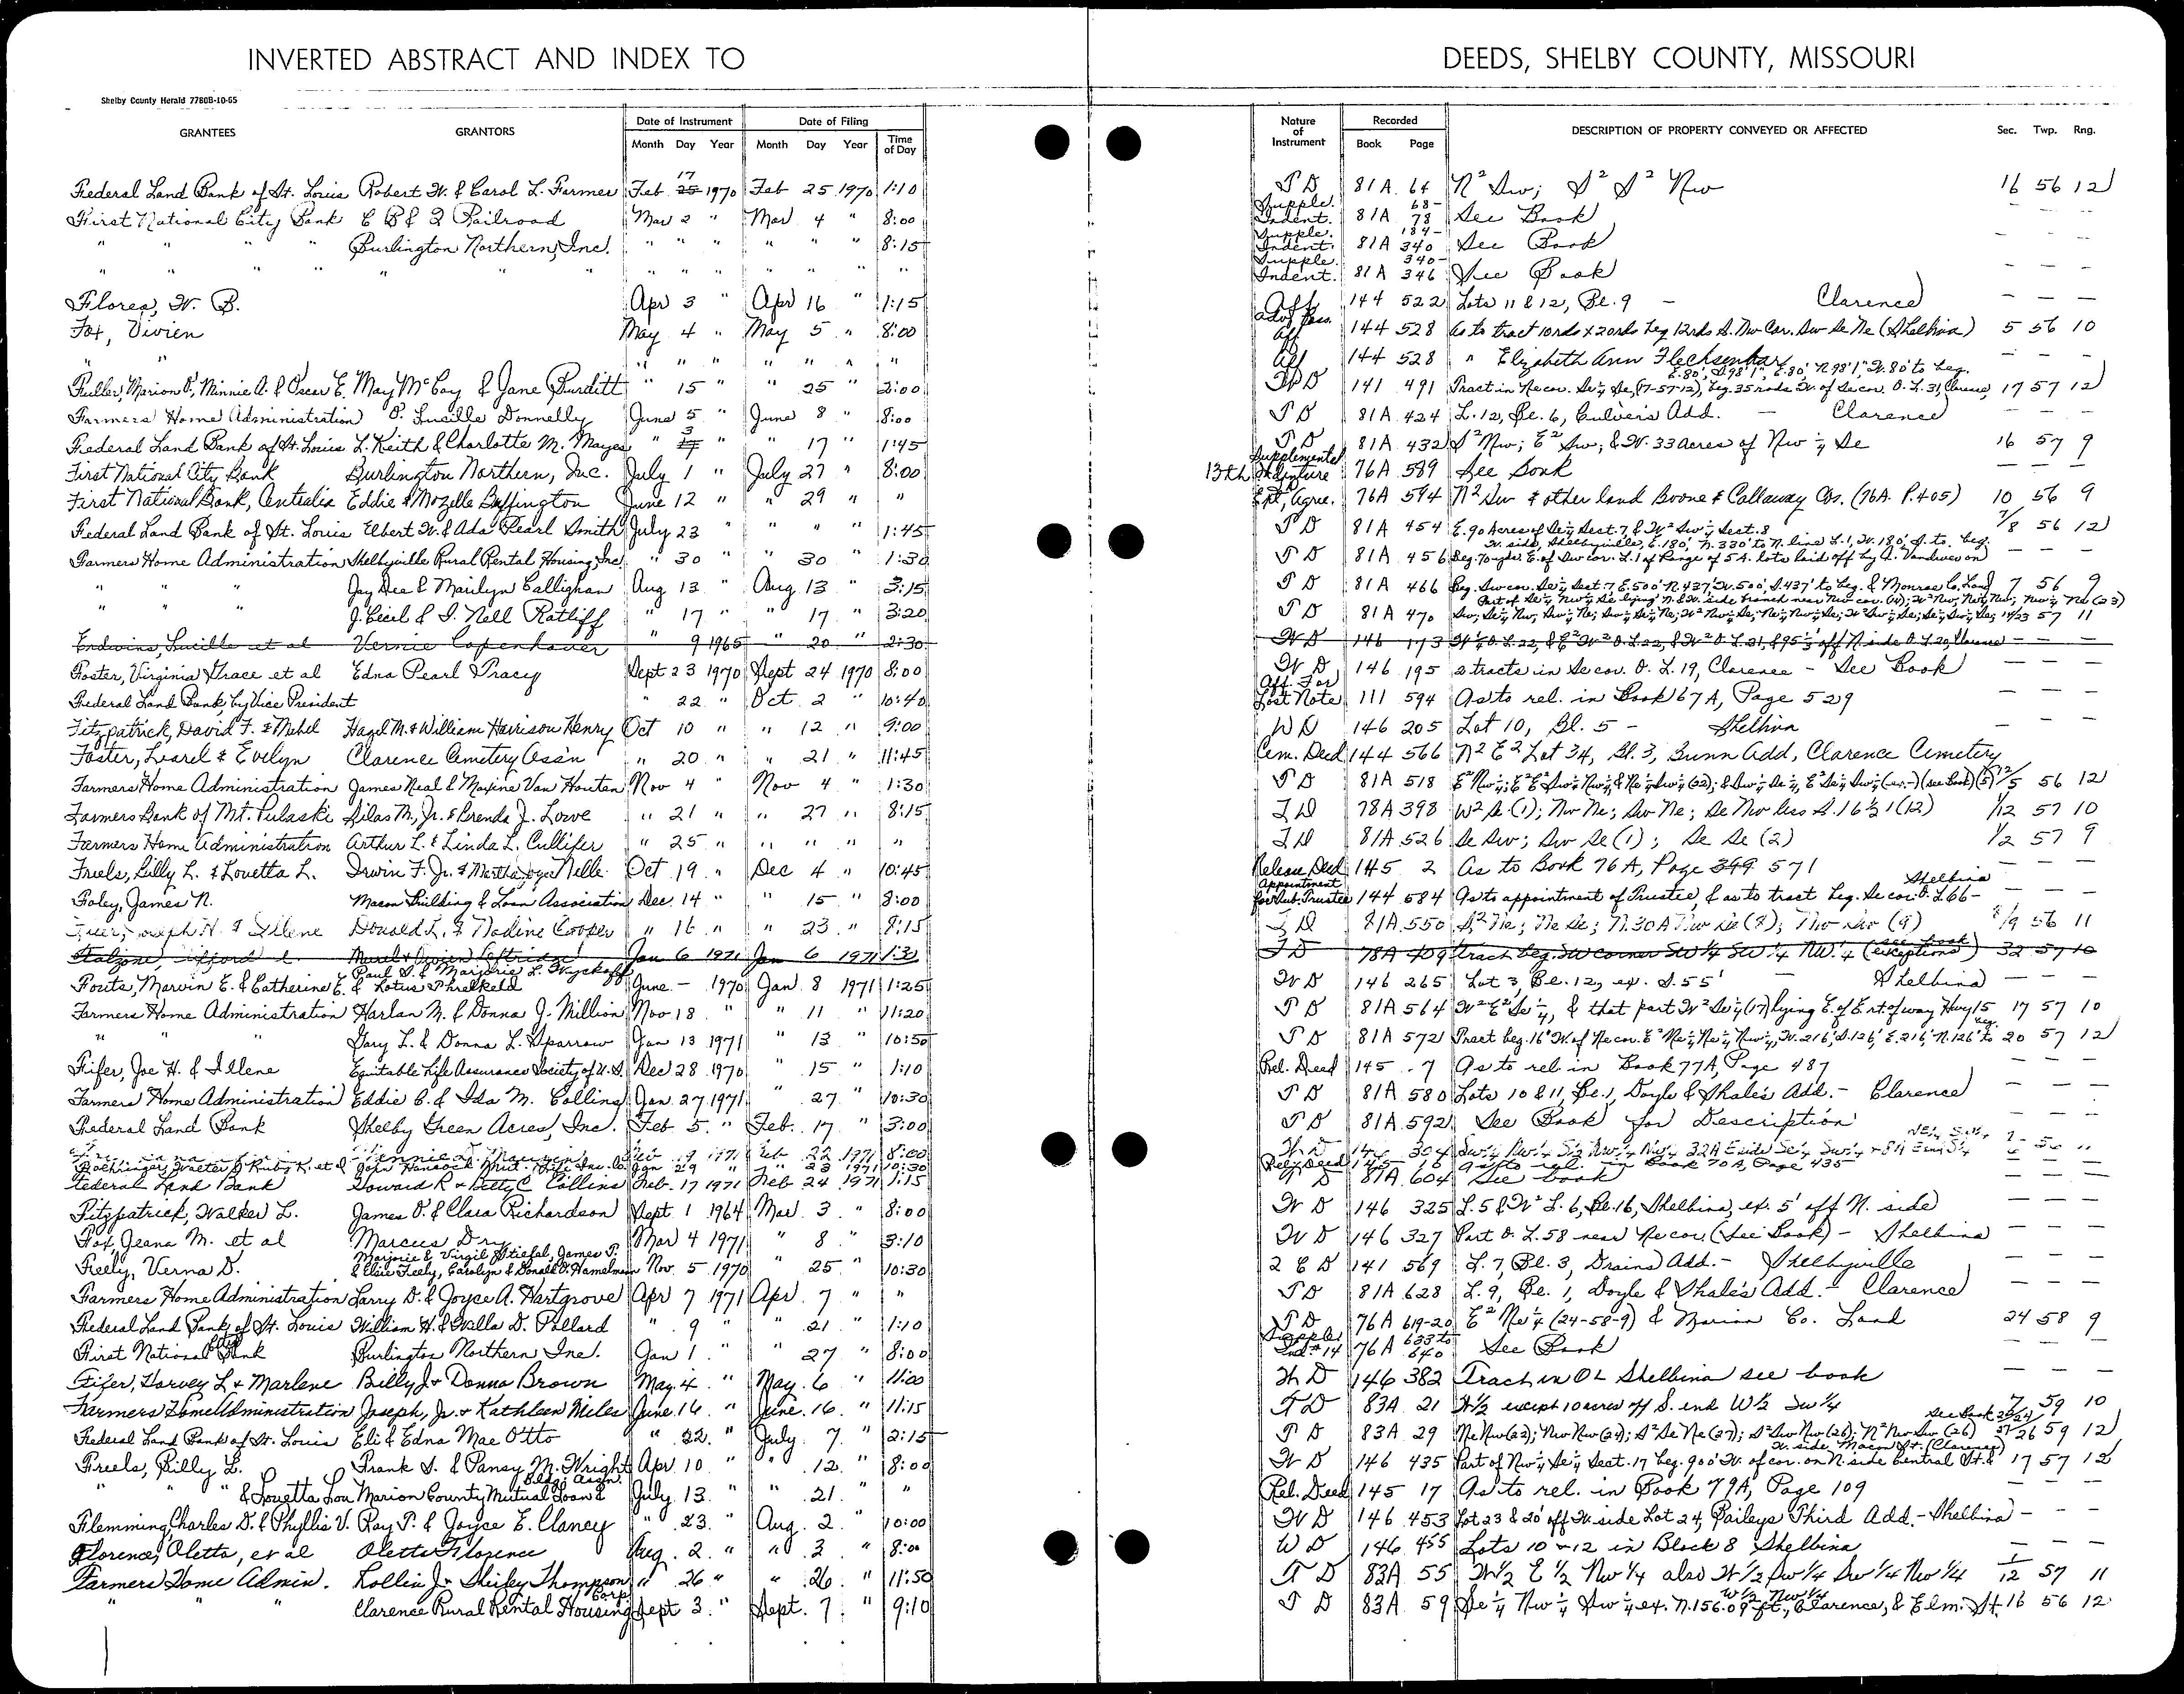 INVERTED ABSTRACT AND INDEX TO DEEDS, SHELBY COUNTY, MISSOURI
Shelby County Herald 7780B-10-65
GRANTEES GRANTORS Date of Instrument Month Day Year Date of Filing Month Day Year Time of Day Nature of Instrument Recorded Book Page DESCRIPTION OF PROPERTY CONVEYED OR AFFECTED Sec. Twp. Rng.
Federal Land Bank of St. Louis Robert W. & Carol L. Farmer Feb 17 1970 Feb 25 1970 1:10 T D 81A 64 N² Sw; S² S² Nw 16 56 12
First National City Bank C B & Q Railroad Mar 2 " Mar 4 " 8:00 Supple. Indent. 81A 68-78 See Book — — —
" " " " Burlington Northern, Inc. " " " " " " 8:15 Supple. Indent. 81A 184-340 See Book — — —
" " " " " " " " " " " " " " Supple. Indent. 81A 340-346 See Book — — —
Flores, W. B. Apr 3 " Apr 16 " 1:15 Aff. 144 522 Lots 11 & 12, Bl. 9 — Clarence — — —
Fox, Vivien May 4 " May 5 " 8:00 Adv. Poss. Aff 144 528 As to tract 10rds x 20rds beg 12rds S. Nw Cor. Sw Se Ne (Shelbina) 5 56 10
" " " " " " " " " Aff 144 528 " Elizabeth Ann Flechsenhar — — —
Fuller, Marion O., Minnie A. & Oscar E. May McCoy & Jane Burditt " 15 " " 25 " 2:00 W D 141 491 Tract in Ne cor. Se¼ Se (17-57-12), beg. 35 rods W. of Se cor. O. L. 31, Clarence, E. 80', S. 98'1", E. 80', N. 98'1", W. 80' to beg. 17 57 12
Farmers Home Administration O. Lucille Donnelly June 5 " June 8 " 8:00 T D 81A 424 L. 12, Bl. 6, Culver's Add. — Clarence — — —
Federal Land Bank of St. Louis L. Keith & Charlotte M. Mayes " 3 " " 17 " 1:45 T D 81A 432 S² Nw; E² Sw; & W. 33 Acres of Nw ¼ Se 16 57 9
First National City Bank Burlington Northern, Inc. July 1 " July 27 " 8:00 13th Supplemental Indenture 76A 589 See Book — — —
First National Bank, Centralia Eddie & Mozelle Buffington June 12 " " 29 " " Ext. Agree. 76A 594 N² Sw & other land Boone & Callaway Cos. (76A P. 405) 10 56 9
Federal Land Bank of St. Louis Elbert W. & Ada Pearl Smith July 23 " " " " 1:45 T D 81A 454 E. 90 Acres of Se¼ Sect. 7 & W² Sw¼ Sect. 8 7/8 56 12
Farmers Home Administration Shelbyville Rural Rental Housing, Inc. " 30 " " 30 " 1:30 T D 81A 456 Beg. 70 yds. E. of Sw cor. L. 1 of Range of 5 A. lots laid off by A. Vandiver on W. side, Shelbyville, E. 180', N. 330' to N. line L. 1, W. 180', S. to beg. — — —
" " " Jay Dee & Marilyn Callighan Aug 13 " Aug 13 " 3:15 T D 81A 466 Beg. Sw cor. Se¼ Sect. 7 E. 500' N. 437', W. 500', S. 437' to beg. & Monroe Co. Land 7 56 9
" " " J. Cecil & I. Nell Ratliff " 17 " " 17 " 3:20 T D 81A 470 14/23 57 11
Edwins, Lucille et al Vernie Copenhaver " 9 1965 " 20 " 2:30 W D 146 173 — — —
Foster, Virginia Grace et al Edna Pearl Tracy Sept 23 1970 Sept 24 1970 8:00 W D 146 195 2 tracts in Se cor. O. L. 19, Clarence — See Book — — —
Federal Land Bank, by Vice President " 22 " Oct. 2 " 10:40 Aff. For Lost Note 111 594 As to rel. in Book 67A, Page 529 — — —
Fitzpatrick, David F. & Mehel Hazel M. & William Harrison Henry Oct 10 " " 12 " 9:00 W D 146 205 Lot 10, Bl. 5 — Shelbina — — —
Foster, Learel & Evelyn Clarence Cemetery Ass'n " 20 " " 21 " 11:45 Cem. Deed 144 566 N² E² Lot 34, Bl. 3, Bunn Add, Clarence Cemetery
Farmers Home Administration James Neal & Maxine Van Houten Nov 4 " Nov 4 " 1:30 T D 81A 518 56 12
Farmers Bank of Mt. Pulaski Silas M., Jr. & Brenda J. Lowe " 21 " " 27 " 8:15 T D 78A 398 W² Se (1); Nw Ne; Sw Ne; Se Nw less S. 16 ½ 1 (12) 1/12 57 10
Farmers Home Administration Arthur L. & Linda L. Cullifer " 25 " " " " " T D 81A 526 Se Sw; Sw Se (1); Se Se (2) 1/2 57 9
Freels, Billy L. & Louetta L. Irwin F. Jr. & Martha Joyce Nelle Oct 19 " Dec 4 " 10:45 Release Deed 145 2 As to Book 76A, Page 349 571 — — —
Foley, James N. Macon Building & Loan Association Dec. 14 " " 15 " 8:00 Appointment for Sub. Trustee 144 584 As to appointment of Trustee, & as to tract beg. Se cor. O. L. 66 — Shelbina — — —
Joseph H. & Illene Donald L. & Nadine Cooper " 16 " " 23 " 8:15 T D 81A 550 S² Ne; Ne Se; N. 30 A Nw Se (8); Nw Sw (9) 8/9 56 11
Jan 6 1971 Jan 6 1971 1:30 T D 78A 409 tract beg. SW corner SW ¼ SW ¼ NW ¼ (see book exceptions) 32 57 10
Fouts, Marvin E. & Catherine E. Paul S. & Marjorie L. Wyckoff & Lotus Threlkeld June — 1970 Jan 8 1971 1:25 W D 146 265 Lot 3, Bl. 12, ex. S. 55' Shelbina — — —
Farmers Home Administration Harlan M. & Donna J. Million Nov 18 " " 11 " 11:20 T D 81A 564 W² E² Se¼, & that part W² Se¼ (17) lying E. of E. rt. of way Hwy 15 17 57 10
" " " Gary L. & Donna L. Sparrow Jan 13 1971 " 13 " 10:50 T D 81A 572 Tract beg. 16' W. of Ne cor. E² Ne¼ Ne¼ Nw¼, W. 216', S. 126', E. 216', N. 126' to beg. 20 57 12
Fifer, Joe H. & Illene Equitable Life Assurance Society of U.S. Dec 28 1970 " 15 " 1:10 Rel. Deed 145 7 As to rel. in Book 77A, Page 487 — — —
Farmers Home Administration Eddie C. & Ida M. Collins Jan. 27 1971 " 27 " 10:30 T D 81A 580 Lots 10 & 11, Bl. 1, Doyle & Shale's Add. — Clarence — — —
Federal Land Bank Shelby Green Acres, Inc. Feb 5 " Feb. 17 " 3:00 T D 81A 592 See Book for Description — — —
Feb 19 1971 Feb 22 1971 8:00 W D
John Hancock Mut. Life Ins. Co. Jan 29 " " 23 1971 10:30 Rel. Deed 145 16 As to rel. in Book 70A, Page 435 — — —
Federal Land Bank Howard R & Betty C Collins Feb. 17 1971 Feb 24 1971 1:15 T D 81A 604 See book — — —
Fitzpatrick, Walker L. James O. & Clara Richardson Sept 1 1964 Mar 3 " 8:00 W D 146 325 L. 5 & W² L. 6, Bl. 16, Shelbina, ex. 5' off N. side — — —
Fox, Jeana M. et al Marcus Dry Mar 4 1971 " 8 " 3:10 W D 146 327 Part O. L. 58 near Ne cor. (See Book) — Shelbina — — —
Feely, Verna D. Marjorie & Virgil Stiefal, James P. & Elsie Feely, Carolyn & Donald D. Hamelman Nov. 5 1970 " 25 " 10:30 Q C D 141 569 L. 7, Bl. 3, Drains Add. — Shelbyville — — —
Farmers Home Administration Larry D. & Joyce A. Hartgrove Apr 7 1971 Apr. 7 " " T D 81A 628 L. 9, Bl. 1, Doyle & Shale's Add. — Clarence — — —
Federal Land Bank of St. Louis William H. & Willa D. Pollard " 9 " " 21 " 1:10 T D 76A 619-20 E² Ne¼ (24-58-9) & Marion Co. Land 24 58 9
First National City Bank Burlington Northern Inc. Jan 1 " " 27 " 8:00 Supple. Ind. #14 76A 633 to 640 See Book — — —
Fifer, Harvey L & Marlene Billy J & Donna Brown May 4 " May. 6 " 11:00 W D 146 382 Tract in OL Shelbina see book — — —
Farmers Home Administration Joseph, Jr. & Kathleen Miles June 16 " June. 16 " 11:15 T D 83A 21 W½ except 10 acres off S. end W½ Sw¼ 7 59 10
Federal Land Bank of St. Louis Eli & Edna Mae Otto " 22 " July 7 " 2:15 T D 83A 29 See Book 59 12
Freels, Billy L. Frank S. & Pansy M. Wright Apr. 10 " " 12 " 8:00 W D 146 435 Part of Nw¼ Se¼ Sect. 17 beg. 900' W. of cor. on N. side Central St. & W. side Macon St. (Clarence) 17 57 12
" " " & Louetta Lou Marion County Mutual Loan & Bldg. Assn. July 13 " " 21 " " Rel. Deed 145 17 As to rel. in Book 79A, Page 109 — — —
Flemming, Charles D. & Phyllis V. Ray T. & Joyce E. Claney " 23 " Aug. 2 " 10:00 W D 146 453 Lot 23 & 20' off W. side Lot 24, Baileys Third Add. — Shelbina — — —
Florence, Oletta, et al Oletta Florence Aug. 2 " " 3 " 8:00 W D 146 455 Lots 10 - 12 in Block 8 Shelbina — — —
Farmers Home Admin. Rollin J. & Shirley Thompson " 26 " " 26 " 11:50 T D 83A 55 W½ E½ Nw¼ also W½ Sw¼ Sw¼ Nw¼ 1/12 57 11
" " " Clarence Rural Rental Housing Corp. Sept 3 " Sept. 7 " 9:10 T D 83A 59 Se¼ Nw¼ Sw¼ ex. N. 156.09 ft., W½ Nw¼ Clarence, & Elm. St. 16 56 12